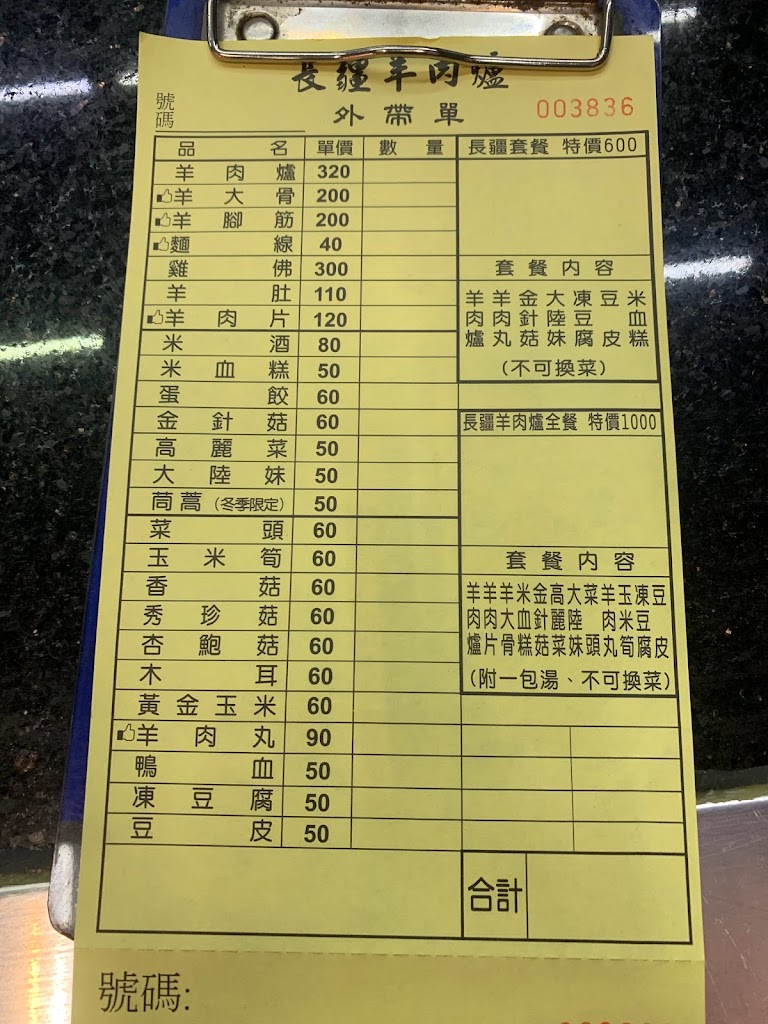 長疆羊肉爐
號碼
外帶單 003836
品名 單價 數量
羊肉爐 320
👍羊大骨 200
👍羊腳筋 200
👍麵線 40
雞佛 300
羊肚 110
👍羊肉片 120
米酒 80
米血糕 50
蛋餃 60
金針菇 60
高麗菜 50
大陸妹 50
茼蒿(冬季限定) 50
菜頭 60
玉米筍 60
香菇 60
秀珍菇 60
杏鮑菇 60
木耳 60
黃金玉米 60
👍羊肉丸 90
鴨血 50
凍豆腐 50
豆皮 50
長疆套餐 特價600
套餐內容
羊羊金大凍豆米
肉肉針陸豆 血
爐丸菇妹腐皮糕
(不可換菜)
長疆羊肉爐全餐 特價1000
套餐內容
羊羊羊米金高大菜羊玉凍豆
肉肉大血針麗陸 肉米豆
爐片骨糕菇菜妹頭丸筍腐皮
(附一包湯、不可換菜)
合計
號碼: